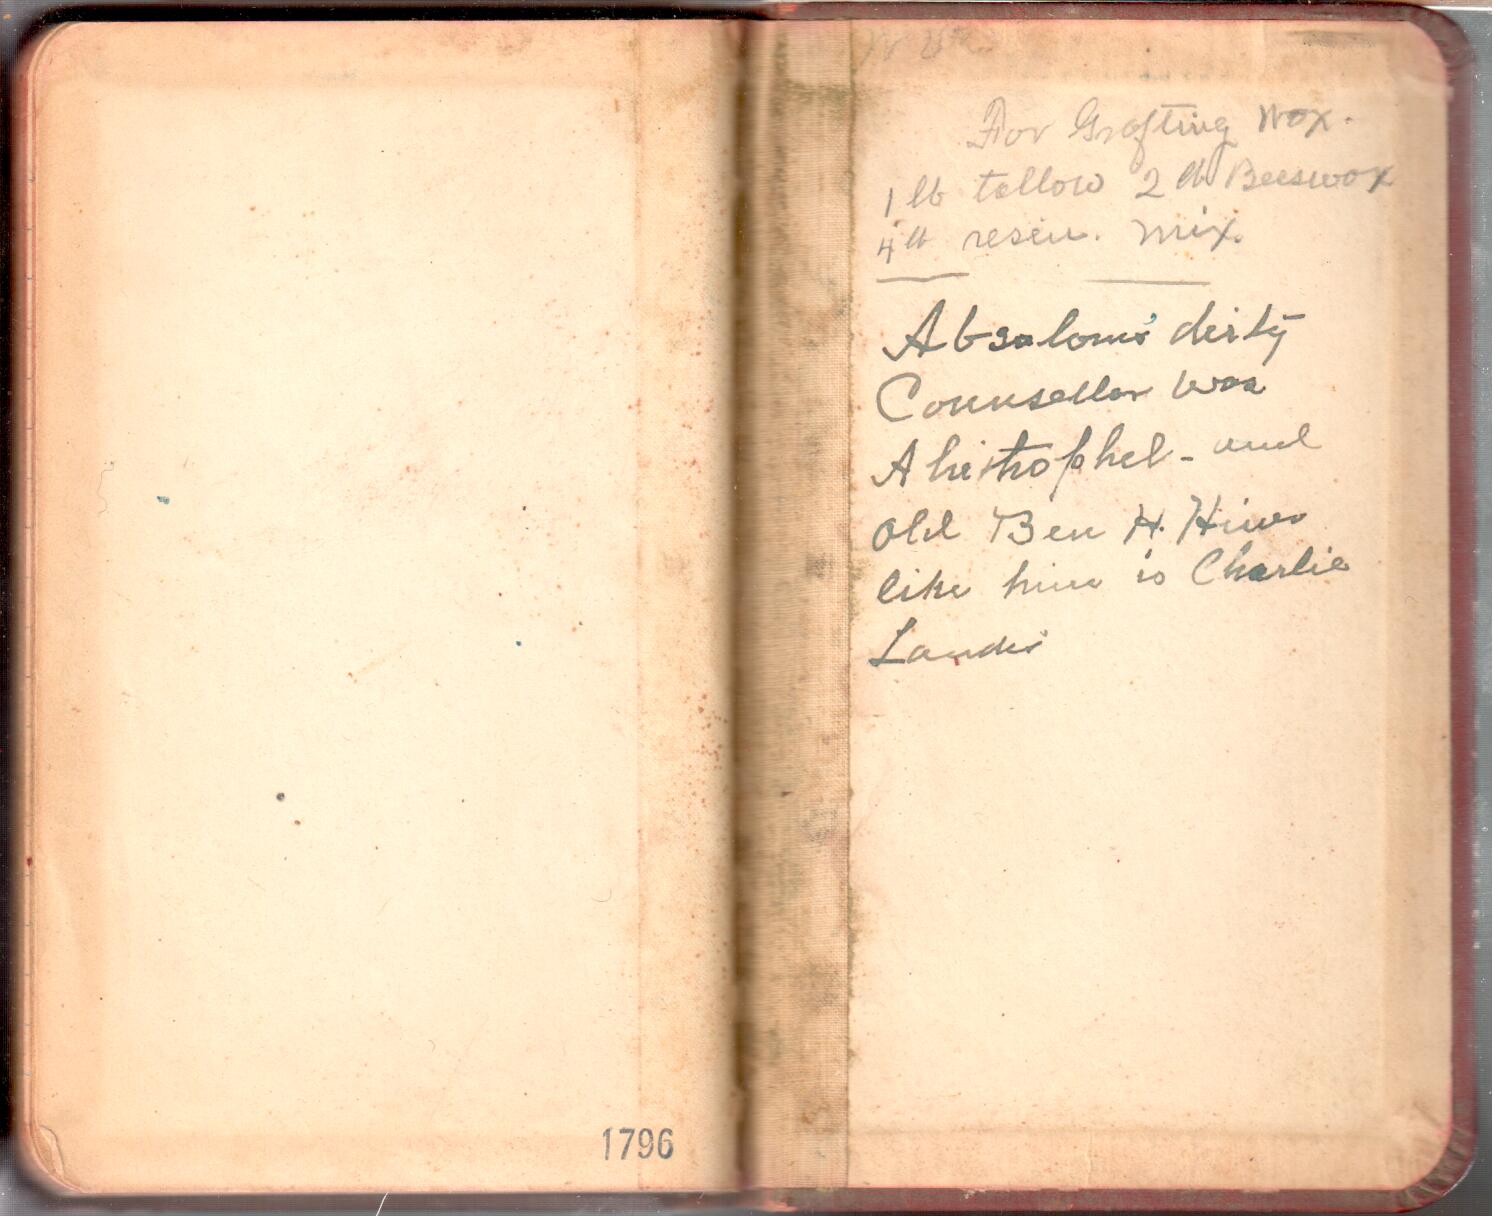 For Grafting Wax.
1 lb tallow 2 lb Beeswax
4 lb resin. Mix.
Absalom's dirty
Counsellor was
Ahithophel - and
old Ben H. Hill
like him is Charlie
Landis
1796